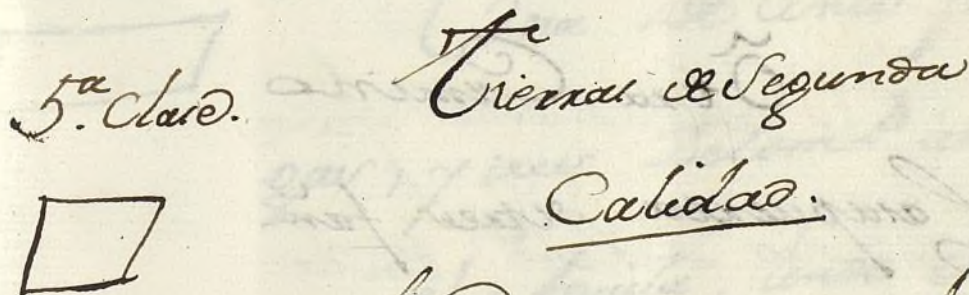 5.ª Clase. Tierras de Segunda
Calidad.